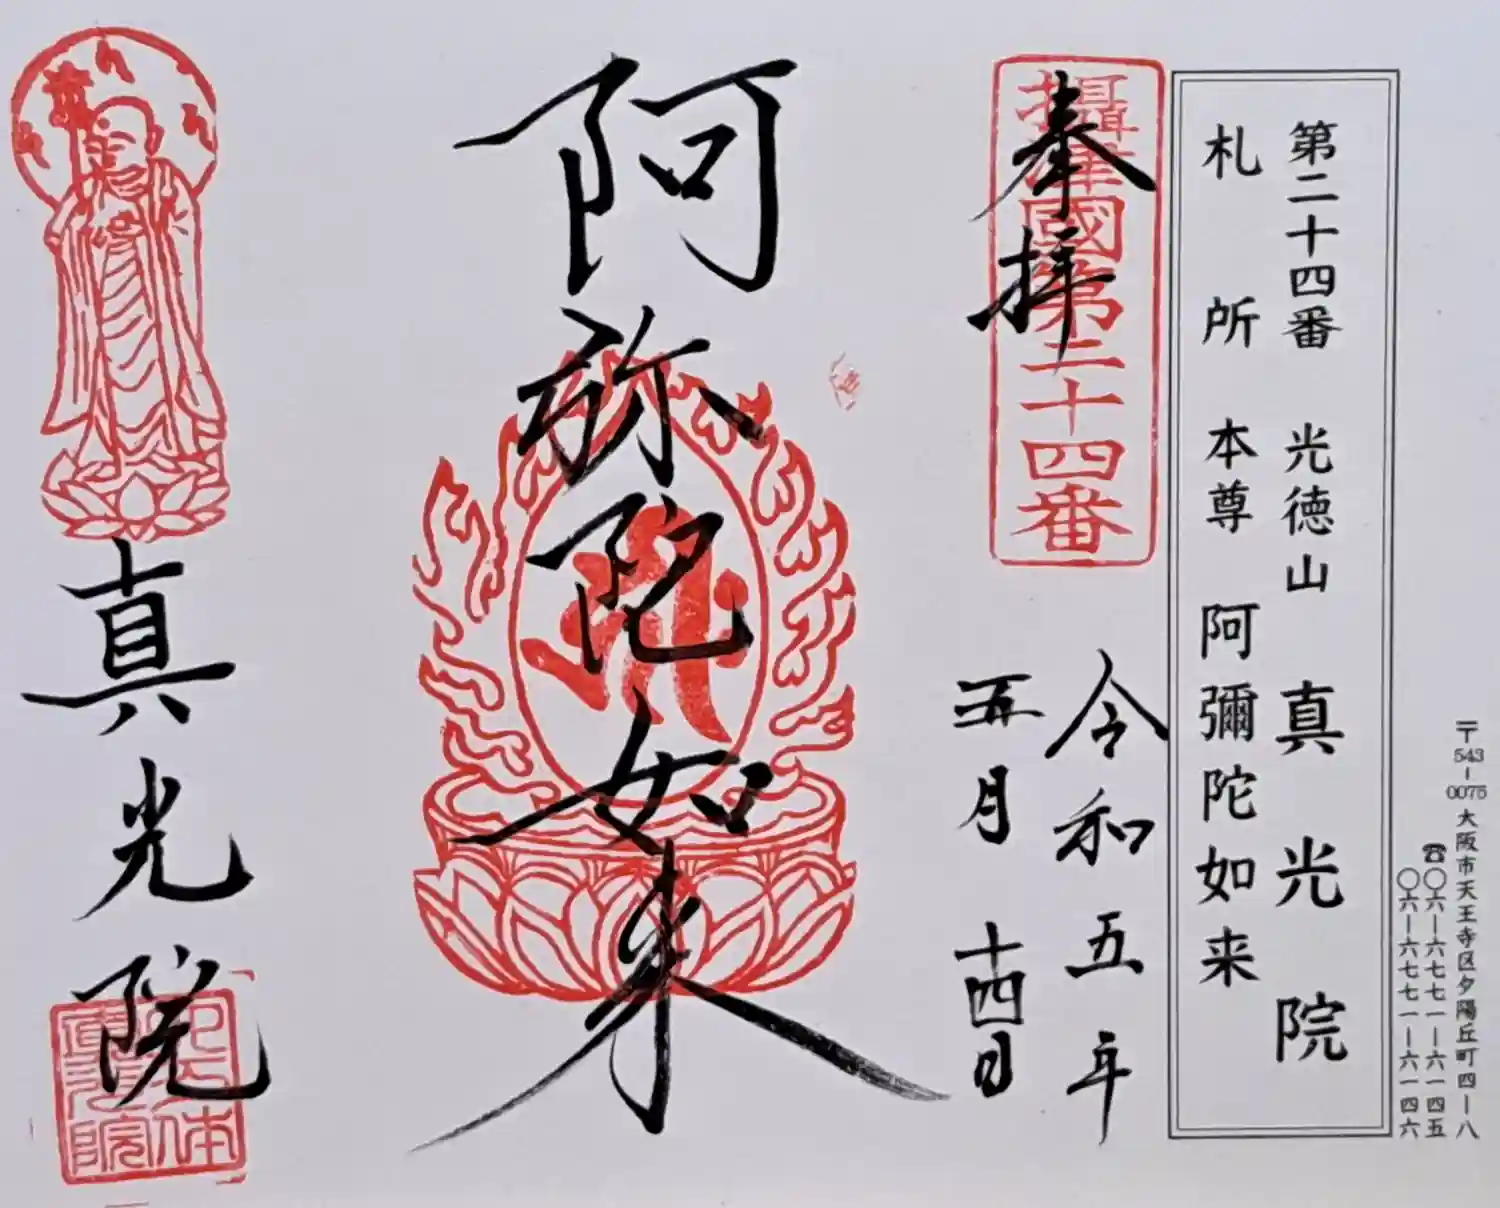 〒543-0075 大阪市天王寺区夕陽丘町四-八
☎〇六-六七七一-六一四五
〇六-六七七一-六一四六
第二十四番 光徳山 真光院
札所 本尊 阿彌陀如来
攝津國第二十四番
奉拝
令和五年
五月十四日
阿弥陀如来
真光院